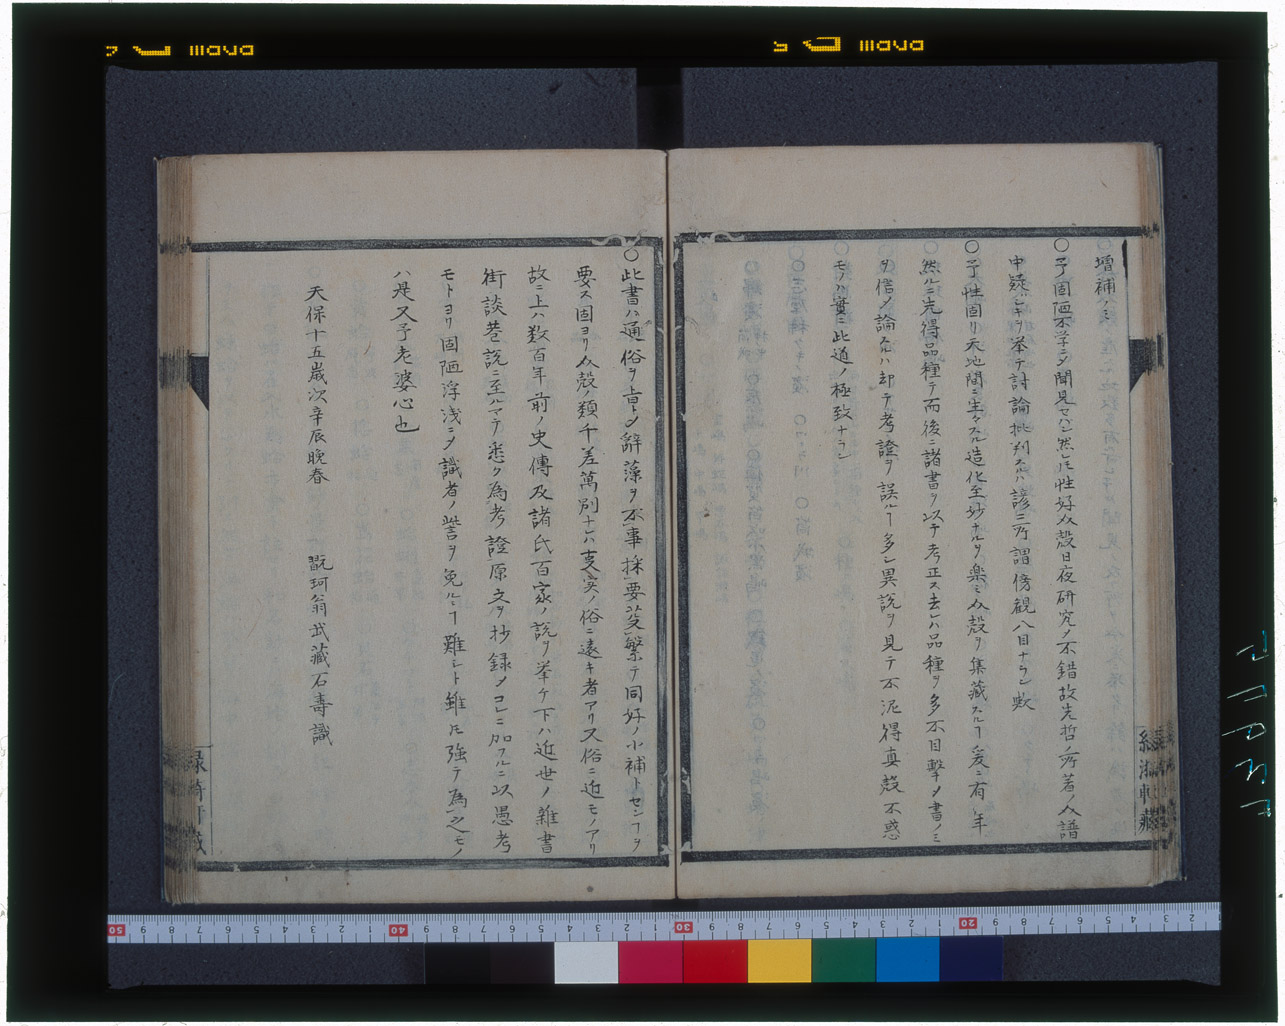 増補ハミ
〇予固陋不学ニメ聞見セハシ然レ𪜈性好介殻日夜研究メ不錯故先哲ノ所著ノ介譜
中疑シキヲ挙テ討論批判スルハ諺ニ所謂傍観八目ナラン歟
〇予性固リ天地間ニ生々スル造化至妙ナルヲ楽ミ介殻ヲ集蔵スルヿ爰ニ有年
然ルニ先得品種テ而後ニ諸書ヲ以テ考正ス去レハ品種ヲ多不目撃メ書ノミ
ヲ信メ論ルハ却テ考證ヲ誤ルヿ多シ異説ヲ見テ不泥得真殻不惑
モノハ實ニ此道ノ極致ナラン
〇此書ハ通俗ヲ旨トメ辭藻ヲ不事採要芟繁テ同好ノ小補トセンヿヲ
要ス固ヨリ介殻ノ類千差萬別ナレハ支実ノ俗ニ遠キ者アリ又俗ニ近モノアリ
故ニ上ハ数百年前ノ史傳及諸氏百家ノ説ヲ挙ケ下ハ近世ノ雜書
街談巷説ニ至ルマテ悉ク為考證原文ヲ抄録メコレニ加フルニ以愚考
モトヨリ固陋浮浅ニメ識者ノ訾ヲ免ルヽヿ難シト雖𪜈強テ為之モノ
ハ是又予老婆心也
天保十五歳次辛辰晩春 翫珂翁武蔵石壽識